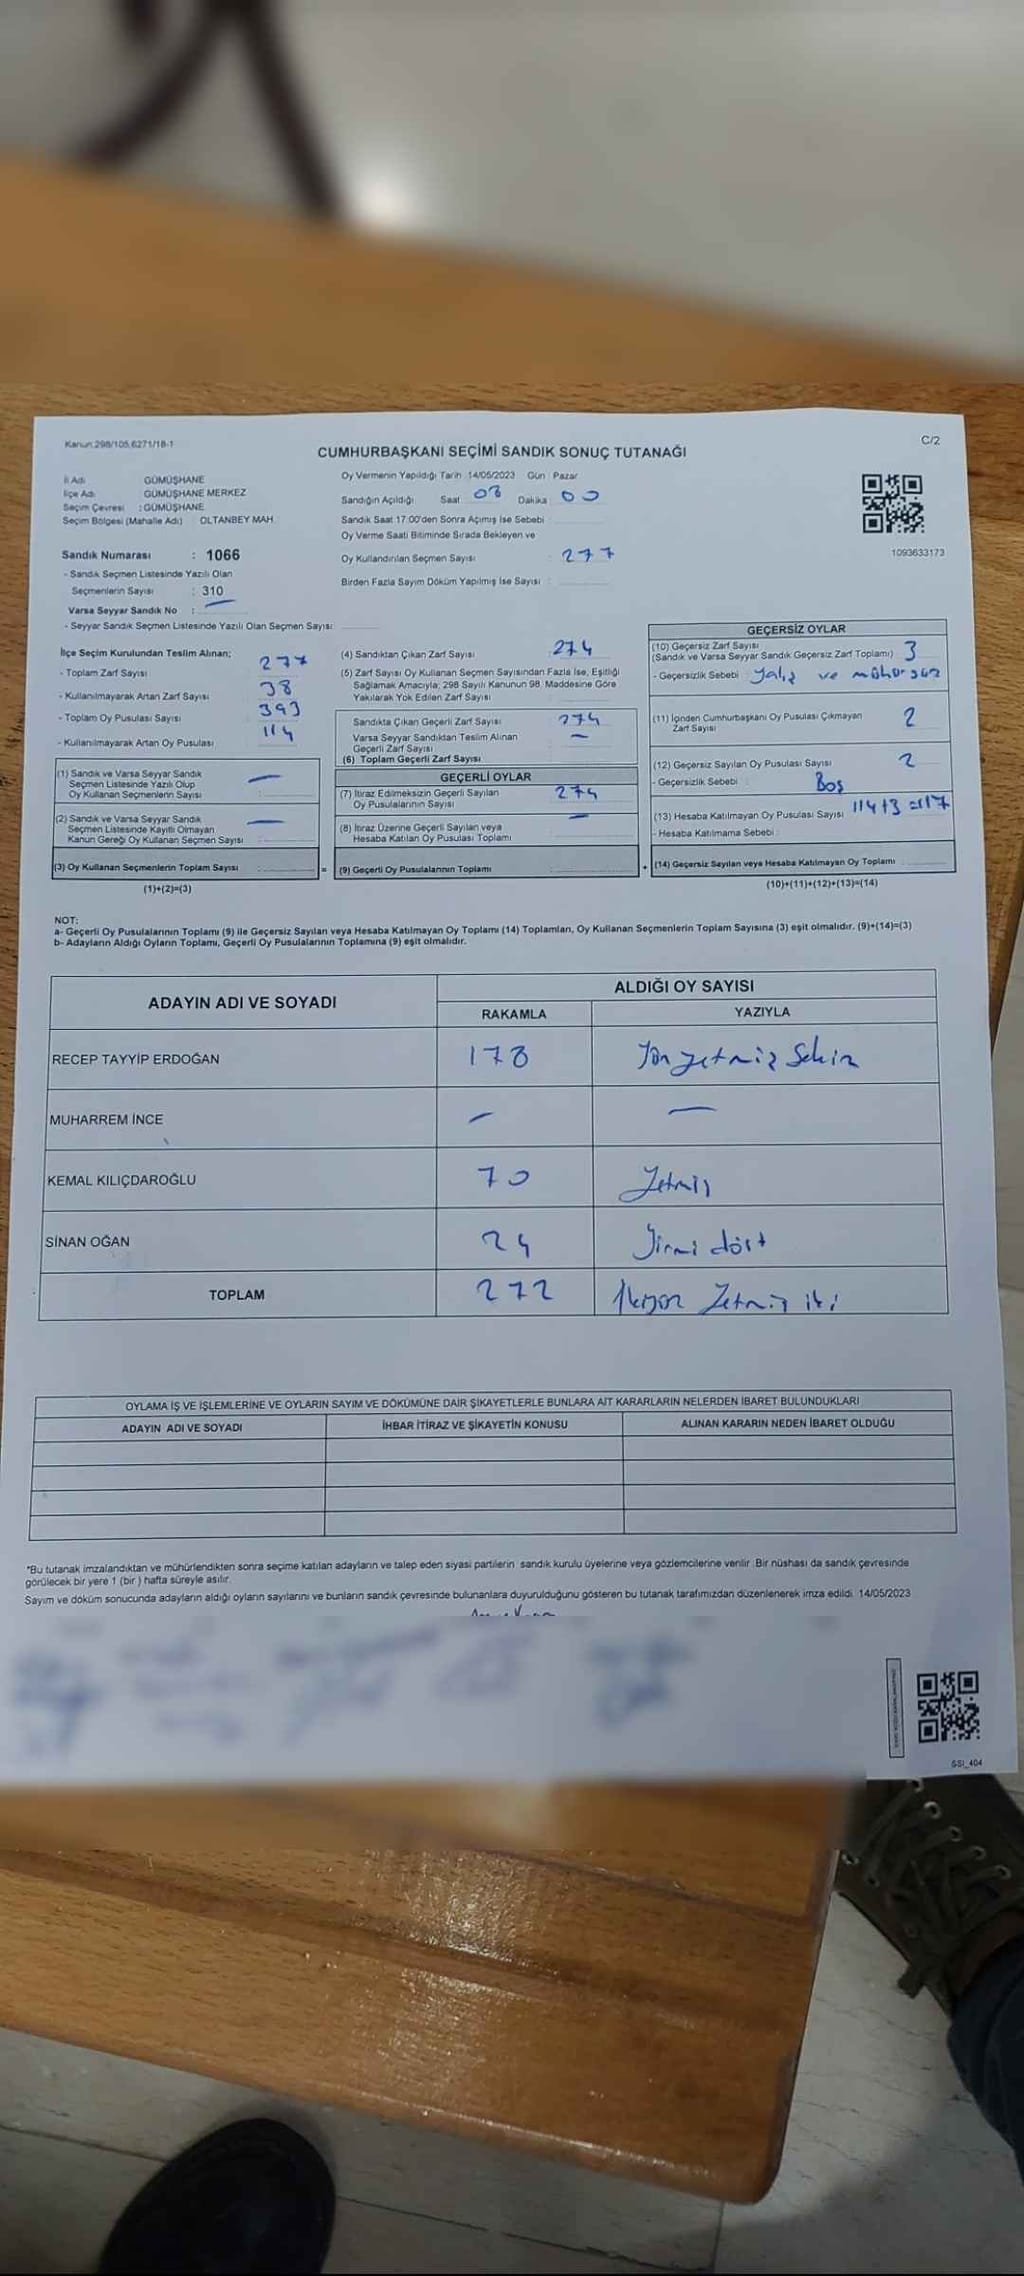 Kanun:298/105,6271/18-1
C/2
CUMHURBAŞKANI SEÇİMİ SANDIK SONUÇ TUTANAĞI
İl Adı GÜMÜŞHANE
İlçe Adı GÜMÜŞHANE MERKEZ
Seçim Çevresi : GÜMÜŞHANE
Seçim Bölgesi (Mahalle Adı) OLTANBEY MAH.
Sandık Numarası : 1066
- Sandık Seçmen Listesinde Yazılı Olan
Seçmenlerin Sayısı : 310
Varsa Seyyar Sandık No : —
- Seyyar Sandık Seçmen Listesinde Yazılı Olan Seçmen Sayısı:
Oy Vermenin Yapıldığı Tarih 14/05/2023 Gün Pazar
Sandığın Açıldığı Saat 08 Dakika 00
Sandık Saat 17:00'den Sonra Açımış İse Sebebi
Oy Verme Saati Bitiminde Sırada Bekleyen ve
Oy Kullandırılan Seçmen Sayısı : 277
Birden Fazla Sayım Döküm Yapılmış İse Sayısı :
1093633173
İlçe Seçim Kurulundan Teslim Alınan;
- Toplam Zarf Sayısı 277
- Kullanılmayarak Artan Zarf Sayısı 38
- Toplam Oy Pusulası Sayısı 393
- Kullanılmayarak Artan Oy Pusulası 114
(1) Sandık ve Varsa Seyyar Sandık
Seçmen Listesinde Yazılı Olup
Oy Kullanan Seçmenlerin Sayısı : —
(2) Sandık ve Varsa Seyyar Sandık
Seçmen Listesinde Kayıtlı Olmayan
Kanun Gereği Oy Kullanan Seçmen Sayısı : —
(3) Oy Kullanan Seçmenlerin Toplam Sayısı :
=
(1)+(2)=(3)
(4) Sandıktan Çıkan Zarf Sayısı 274
(5) Zarf Sayısı Oy Kullanan Seçmen Sayısından Fazla İse, Eşitliği
Sağlamak Amacıyla; 298 Sayılı Kanunun 98. Maddesine Göre
Yakılarak Yok Edilen Zarf Sayısı
Sandıkta Çıkan Geçerli Zarf Sayısı 274
Varsa Seyyar Sandıktan Teslim Alınan
Geçerli Zarf Sayısı —
(6) Toplam Geçerli Zarf Sayısı
GEÇERLİ OYLAR
(7) İtiraz Edilmeksizin Geçerli Sayılan
Oy Pusulalarının Sayısı 274
(8) İtiraz Üzerine Geçerli Sayılan veya
Hesaba Katılan Oy Pusulası Toplamı —
(9) Geçerli Oy Pusulalarının Toplamı
+
GEÇERSİZ OYLAR
(10) Geçersiz Zarf Sayısı
(Sandık ve Varsa Seyyar Sandık Geçersiz Zarf Toplamı) 3
- Geçersizlik Sebebi ve mühürsüz
(11) İçinden Cumhurbaşkanı Oy Pusulası Çıkmayan
Zarf Sayısı 2
(12) Geçersiz Sayılan Oy Pusulası Sayısı 2
- Geçersizlik Sebebi : Boş
(13) Hesaba Katılmayan Oy Pusulası Sayısı 114+3=117
- Hesaba Katılmama Sebebi :
(14) Geçersiz Sayılan veya Hesaba Katılmayan Oy Toplamı
(10)+(11)+(12)+(13)=(14)
NOT:
a- Geçerli Oy Pusulalarının Toplamı (9) ile Geçersiz Sayılan veya Hesaba Katılmayan Oy Toplamı (14) Toplamları, Oy Kullanan Seçmenlerin Toplam Sayısına (3) eşit olmalıdır. (9)+(14)=(3)
b- Adayların Aldığı Oyların Toplamı, Geçerli Oy Pusulalarının Toplamına (9) eşit olmalıdır.
ADAYIN ADI VE SOYADI ALDIĞI OY SAYISI
RAKAMLA YAZIYLA
RECEP TAYYİP ERDOĞAN 178 Yüzyetmiş Sekiz
MUHARREM İNCE — —
KEMAL KILIÇDAROĞLU 70 Yetmiş
SİNAN OĞAN 24 Yirmi dört
TOPLAM 272 İkiyüz Yetmiş iki
OYLAMA İŞ VE İŞLEMLERİNE VE OYLARIN SAYIM VE DÖKÜMÜNE DAİR ŞİKAYETLERLE BUNLARA AİT KARARLARIN NELERDEN İBARET BULUNDUKLARI
ADAYIN ADI VE SOYADI İHBAR İTİRAZ VE ŞİKAYETİN KONUSU ALINAN KARARIN NEDEN İBARET OLDUĞU
*Bu tutanak imzalandıktan ve mühürlendikten sonra seçime katılan adayların ve talep eden siyasi partilerin sandık kurulu üyelerine veya gözlemcilerine verilir. Bir nüshası da sandık çevresinde
görülecek bir yere 1 (bir ) hafta süreyle asılır.
Sayım ve döküm sonucunda adayların aldığı oyların sayılarını ve bunların sandık çevresinde bulunanlara duyurulduğunu gösteren bu tutanak tarafımızdan düzenlenerek imza edildi. 14/05/2023
SSI_404